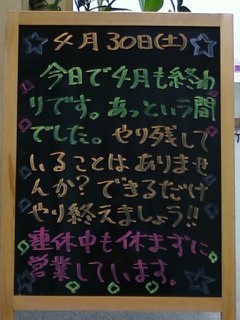 4月30日(土)
今日で4月も終わ
りです。あっという間
でした。やり残して
いることはありませ
んか?できるだけ
やり終えましょう!!
連休中も休まずに
営業しています。